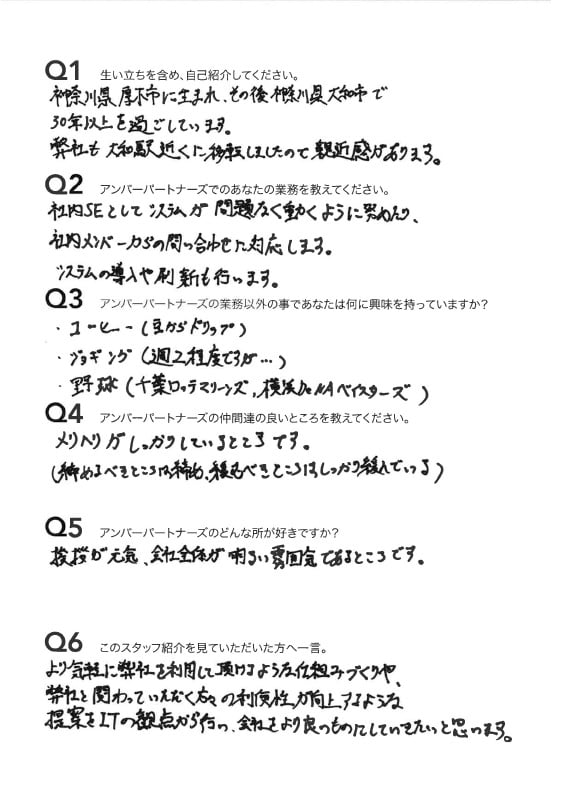 Q1 生い立ちを含め、自己紹介してください。
神奈川県厚木市に生まれ、その後神奈川県大和市で
30年以上を過ごしています。
弊社も大和駅近くに移転しましたので親近感があります。
Q2 アンバーパートナーズでのあなたの業務を教えてください。
社内SEとしてシステムが問題なく動くように努めたり、
社内メンバーからの問い合わせに対応します。
システムの導入や刷新も行います。
Q3 アンバーパートナーズの業務以外の事であなたは何に興味を持っていますか?
・コーヒー(豆からドリップ)
・ジョギング(週2程度ですが…)
・野球(千葉ロッテマリーンズ,横浜DeNAベイスターズ)
Q4 アンバーパートナーズの仲間達の良いところを教えてください。
メリハリがしっかりしているところです。
(締めるべきところは締め、緩むべきところはしっかり緩んでいる)
Q5 アンバーパートナーズのどんな所が好きですか?
挨拶が元気、会社全体が明るい雰囲気であるところです。
Q6 このスタッフ紹介を見ていただいた方へ一言。
より気軽に弊社を利用して頂けるような仕組みづくりや、
弊社と関わっていただく方々の利便性が向上するような
提案をITの観点から行い、会社をより良いものにしていきたいと思います。